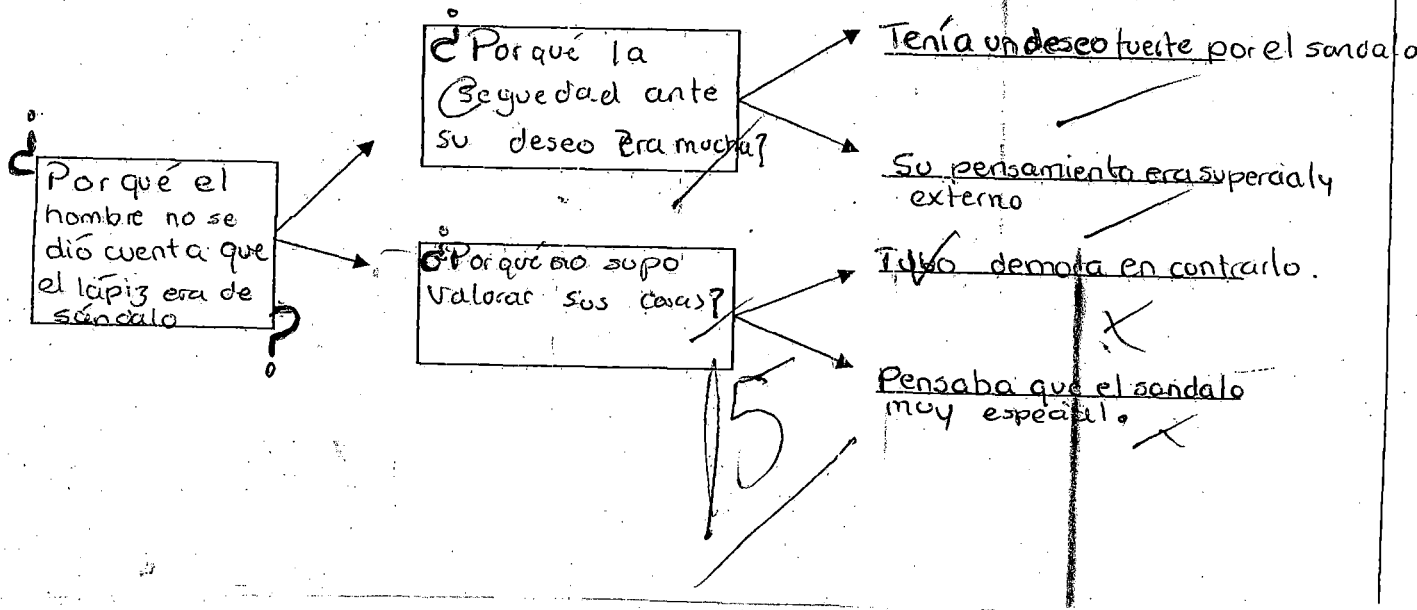 ¿Por qué el
hombre no se
dió cuenta que
el lápiz era de
sándalo?
¿Por qué la
Seguedad ante
su deseo Era mucha?
¿Por qué no supo
valorar sus cosas?
Tenía un deseo fuerte por el sandalo
Su pensamiento era supercial y
externo
Tuvo demora en contrarlo.
Pensaba que el sandalo
muy especial.
15